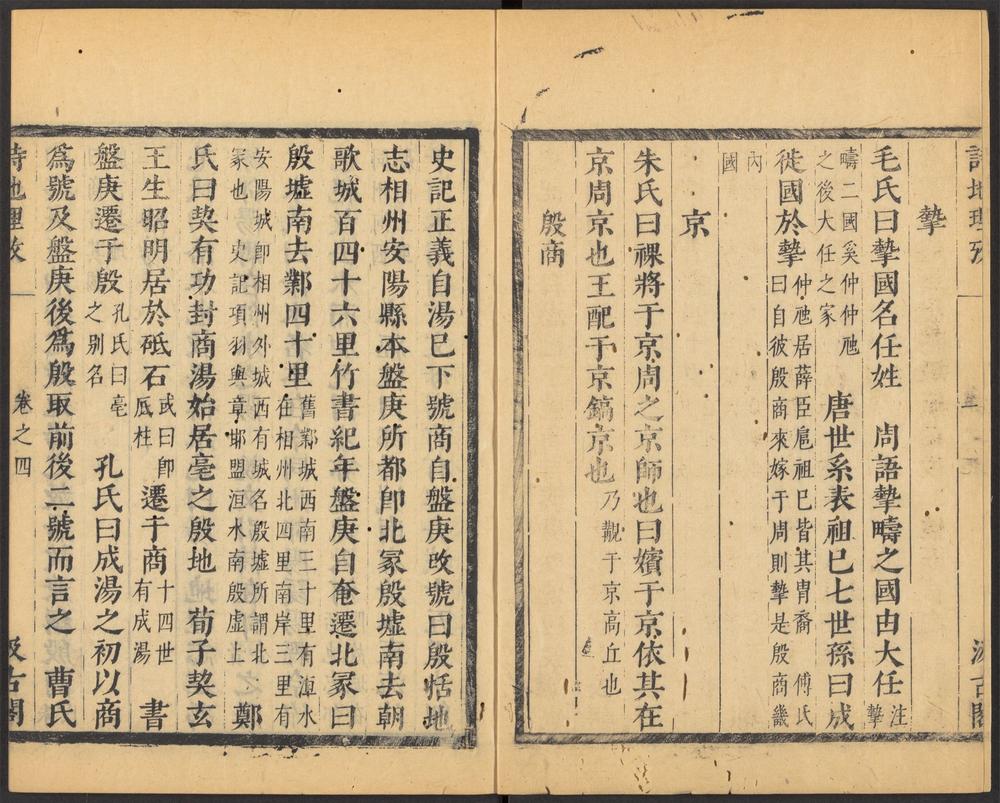 詩地理攷
汲古閣
摯
毛氏曰摯國名任姓　周語摯疇之國由大任注摯
疇二國奚仲仲虺之後大任之家　唐世系表祖巳七世孫曰成
徙國於摯仲虺居薛臣扈祖巳皆其胄裔　傅氏曰自彼殷商來嫁于周則摯是殷商畿
內國
京
朱氏曰祼將于京周之京師也曰嬪于京依其在
京周京也王配于京鎬京也乃覯于京高丘也
殷商
史記正義自湯巳下號商自盤庚改號曰殷恬地
志相州安陽縣本盤庚所都卽北冢殷墟南去朝
歌城百四十六里竹書紀年盤庚自奄遷北冢曰
殷墟南去鄴四十里舊鄴城西南三十里有洹水在相州北四里南岸三里有
安陽城卽相州外城西有城名殷墟所謂北冢也　史記項羽與章邯盟洹水南殷虛上　鄭
氏曰契有功封商湯始居亳之殷地　荀子契玄
王生昭明居於砥石或曰卽厎柱遷于商十四世有成湯　書
盤庚遷于殷孔氏曰亳之别名　孔氏曰成湯之初以商
爲號及盤庚後爲殷取前後二號而言之　曹氏
詩地理攷
卷之四
汲古閣